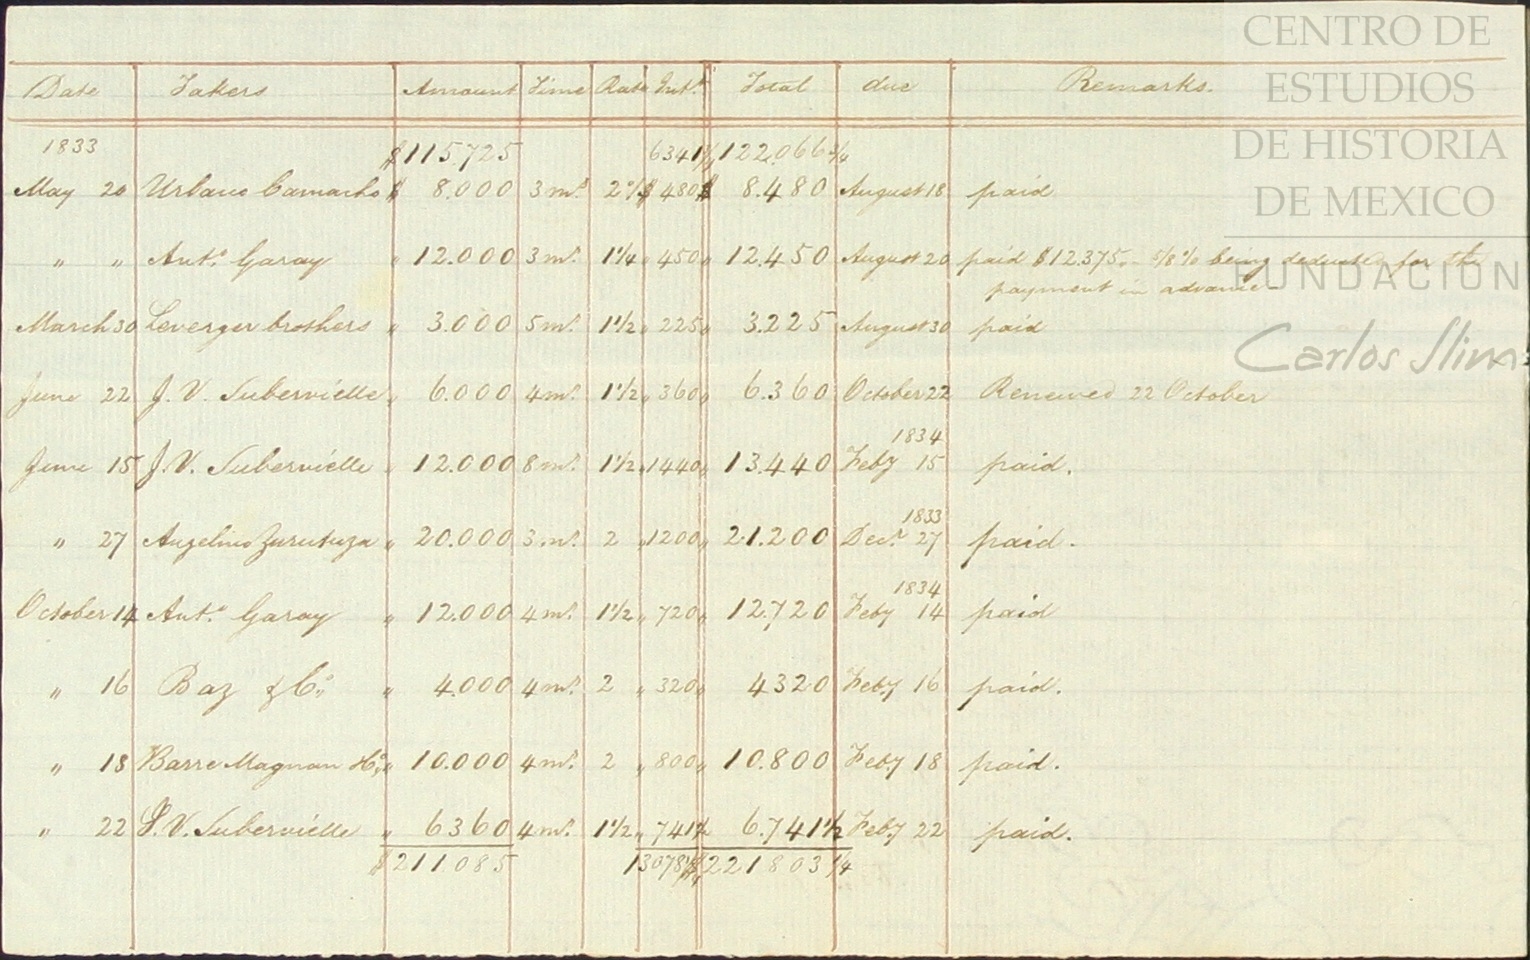 CENTRO DE
ESTUDIOS
DE HISTORIA
DE MEXICO
FUNDACION
Carlos Slim
Date Takers Amount Time Rate Int.t Total due Remarks.
1833 $115.725 6341 122.066
May 20 Urbano Camacho $ 8.000 3 m.s 2% $ 480 $ 8.480 August 18 paid
" " Ant.o Garay " 12.000 3 m.s 1¼ " 450 " 12.450 August 20 paid $12.375. 5/8% being deducted for the
payment in advance
March 30 Leverger brothers " 3.000 5 m.s 1½ " 225 " 3.225 August 30 paid
June 22 J. V. Subervielle " 6.000 4 m.s 1½ " 360 " 6.360 October 22 Renewed 22 October
1834
June 15 J. V. Subervielle " 12.000 8 m.s 1½ " 1440 " 13.440 Feby 15 paid.
1833
" 27 Anselmo Zurutuza " 20.000 3 m.s 2 " 1200 " 21.200 Dec.r 27 paid.
1834
October 14 Ant.o Garay " 12.000 4 m.s 1½ " 720 " 12.720 Feby 14 paid
" 16 Baz & C.o " 4.000 4 m.s 2 " 320 " 4320 Feby 16 paid.
" 18 Barre Magnan & C.o " 10.000 4 m.s 2 " 800 " 10.800 Feby 18 paid.
" 22 J. V. Subervielle " 6360 4 m.s 1½ " 741½ 6.741½ Feby 22 paid.
$211.085 13078 $221803¼